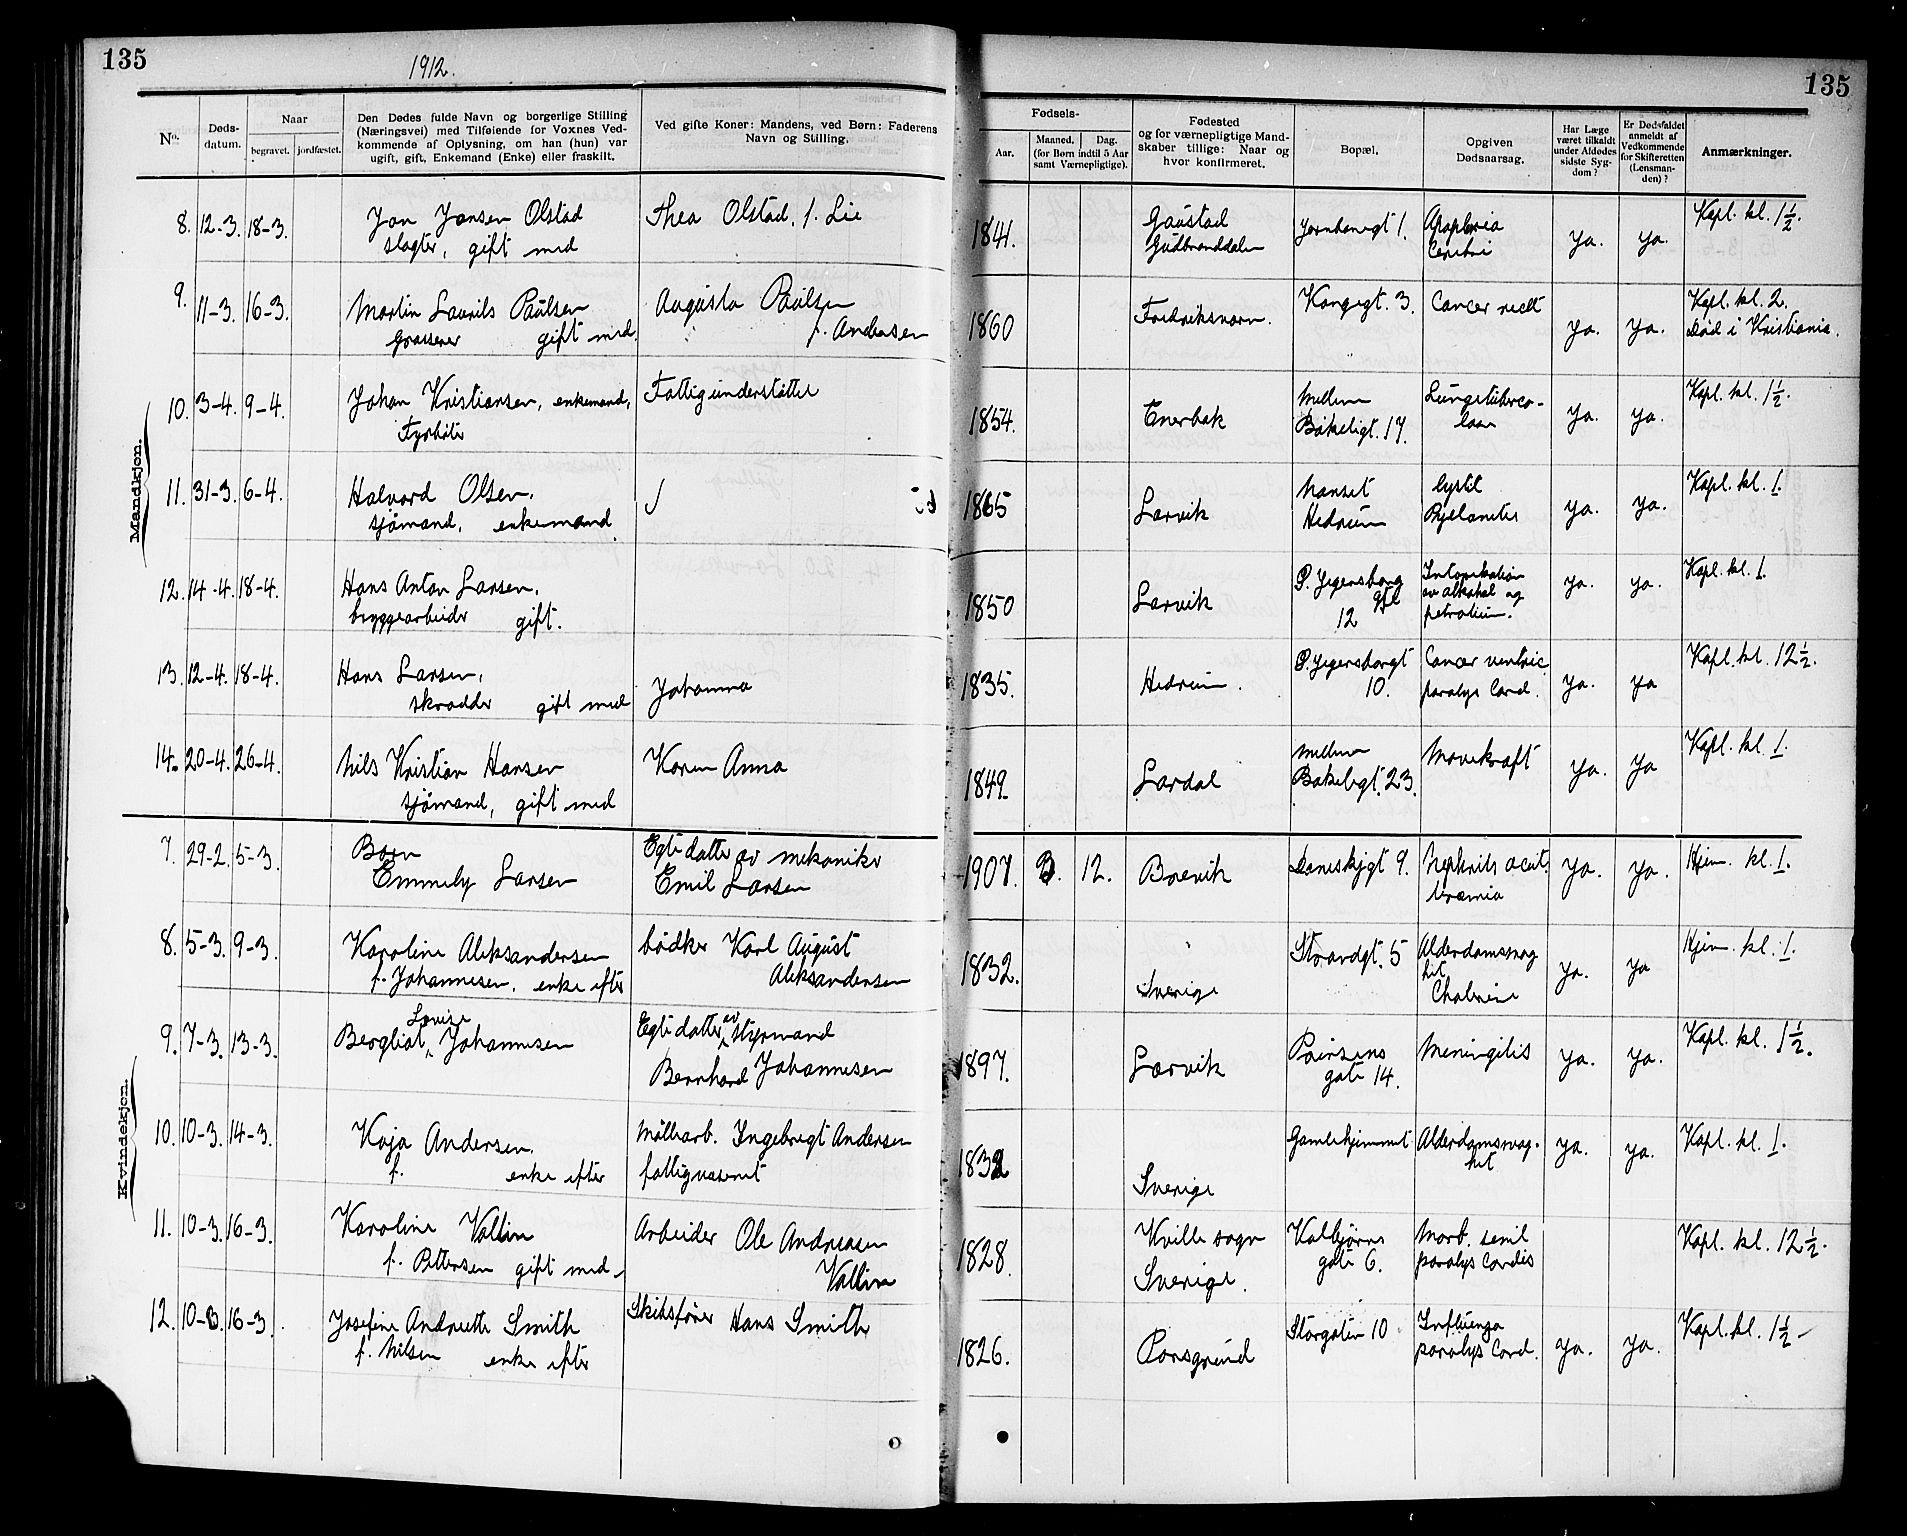 135
1912.
135
No.
Døds-
datum.
Naar
begravet.
jordfæstet.
Den Dødes fulde Navn og borgerlige Stilling
(Næringsvei) med Tilføiende for Voxnes Ved-
kommende af Oplysning, om han (hun) var
ugift, gift, Enkemand (Enke) eller fraskilt.
Ved gifte Koner: Mandens, ved Børn: Faderens
Navn og Stilling.
Fødsels-
Aar.
Maaned.
Dag.
(for Børn indtil 5 Aar
samt Værnepligtige).
Fødested
og for værnepligtige Mand-
skaber tillige: Naar og
hvor konfirmeret.
Bopæl.
Opgiven
Dødsaarsag.
Har Læge
været tilkaldt
under Afdødes
sidste Syg-
dom?
Er Dødsfaldet
anmeldt af
Vedkommende
for Skifteretten
(Lensman-
den)?
Anmærkninger.
Mandkjøn.
8. 12-3. 18-3. Jon Jonsen Olstad Thea Olstad, f. Lie 1841. Gaustad Jernbanegt 1. Apoplexia ja. ja. Kapl. kl. 1½.
slagter, gift med Gudbranddalen Cerebri
9. 11-3. 16-3. Martin Laurits Paulsen Augusta Paulsen 1860 Fredriksværn. Kongegt. 3. Cancer recti ja. ja. Kapl. kl. 2.
grosserer gift med f. Andersen Død i Kristiania.
10. 3-4. 9-4. Johan Kristiansen, enkemand, Fattigunderstøttet 1854. Enerbak Mellem Lungetuberco- ja. ja. Kapl. kl. 1½.
Fyrbøter Bøkeligt. 17. lose
11. 31-3. 6-4. Halvord Olsen. 1865 Larvik Nanset ja. ja. Kapl. kl. 1.
sjømand, enkemand Hedrum
12. 14-4. 18-4. Hans Anton Larsen. 1850 Larvik P. Jegersborg Intoxikation ja. ja. Kapl. kl. 1.
bryggearbeider gift. gt 12 av alkohol og
petroleum.
13. 12-4. 18-4. Hans Larsen, Johanna 1835. Hedrum. P. Jegersborgt Cancer ventric ja. ja Kapl. kl. 12½.
skrædder gift med 10. paralys Cord.
14. 20-4. 26-4. Nils Kristian Hansen Karen Anna 1849. Lardal Mellem Mavekræft ja. ja Kapl. kl. 1.
sjømand, gift med Bøkeligt. 23.
Kvindekjøn.
7. 29-2. 5-3. Barn Egte datter av mekaniker 1907. 12. Brevik 9. Nephrits acut. ja. ja. Hjem. kl. 1.
Emmely Larsen Emil Larsen Uræmia
8. 5-3. 9-3. Karoline Aleksandersen bødker Karl August 1832. Sverige Strandgt. 5 Alderdomssvag ja. ja Hjem. kl. 1.
f. Johannesen, enke efter Aleksandersen het
9. 7-3. 13-3. Bergliot Lovise Johannesen Egte datter av styrmand 1897. Larvik Prinsens Meningitis ja. ja. Kapl. kl. 1½.
Bernhard Johannesen gate 14.
10. 10-3. 14-3. Kaja Andersen. Møllearb. Ingebregt Andersen 1832 Sverige Gamlehjemmet Alderdomssvag- ja. ja. Kapl. kl. 1.
f. enke efter fattigvæsenet het
11. 10-3. 16-3. Karoline Vallin Arbeider Ole Andreasen 1828. Kville sogn Kolbjørns Marb. senil Kapl. kl. 12½.
f. Pettersen gift med Vallin Sverige. gate 6. paralys cordis
12. 10-3. 16-3. Josefine Andrette Smith Skibsfører Hans Smith 1826. Porsgrund Storgaten 10 Influenza ja. ja. Kapl. kl. 1½
f. Nilsen enke efter paralys Cord.